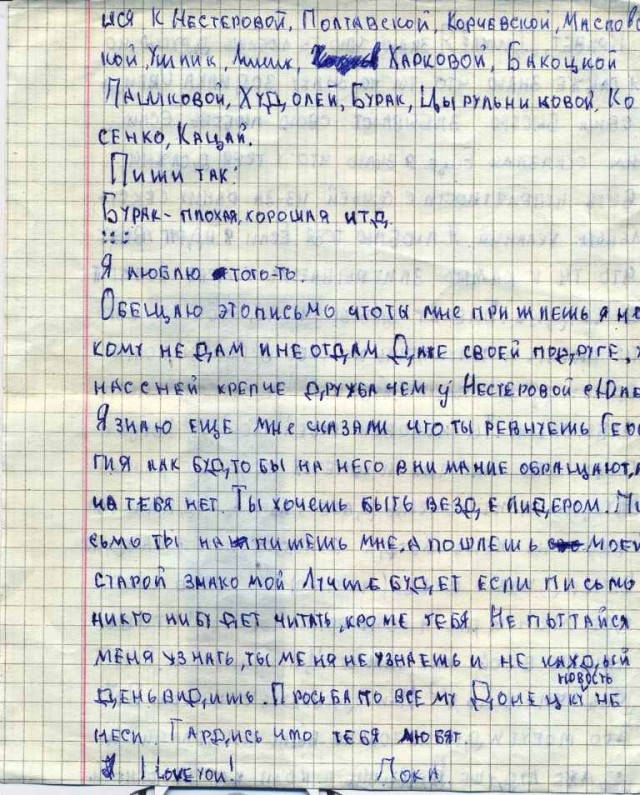 ися к Нестеровой, Полтавской, Корчевской, Маслово
кой, Ушпик, Харковой, Бакоцкой
Пашковой, Худолей, Бурак, Цырульниковой, Ко
сенко, Кацай.
Пиши так:
Бурак- плохая, хорошая итд.
Я люблю того-то.
Обещаю это письмо что ты мне пришлешь я не
кому не дам и не отдам Даже своей подруге, у
нас с ней крепче дружба чем у Нестеровой с Юлей
Я знаю еще мне сказали что ты ревнуешь Геор
гия как будто бы на него внимание обращают, а
на тебя нет. Ты хочешь быть везде лидером. Пи
сьмо ты напишешь мне, а пошлешь моей
старой знакомой Лучше будет если письмо
никто нибудет читать, кроме тебя. Не пытайся
меня узнать, ты меня не узнаешь и не каждый
новость
день видишь. Просьба по всему Донецку не
неси. Гардись что тебя любят.
I love you! Пока